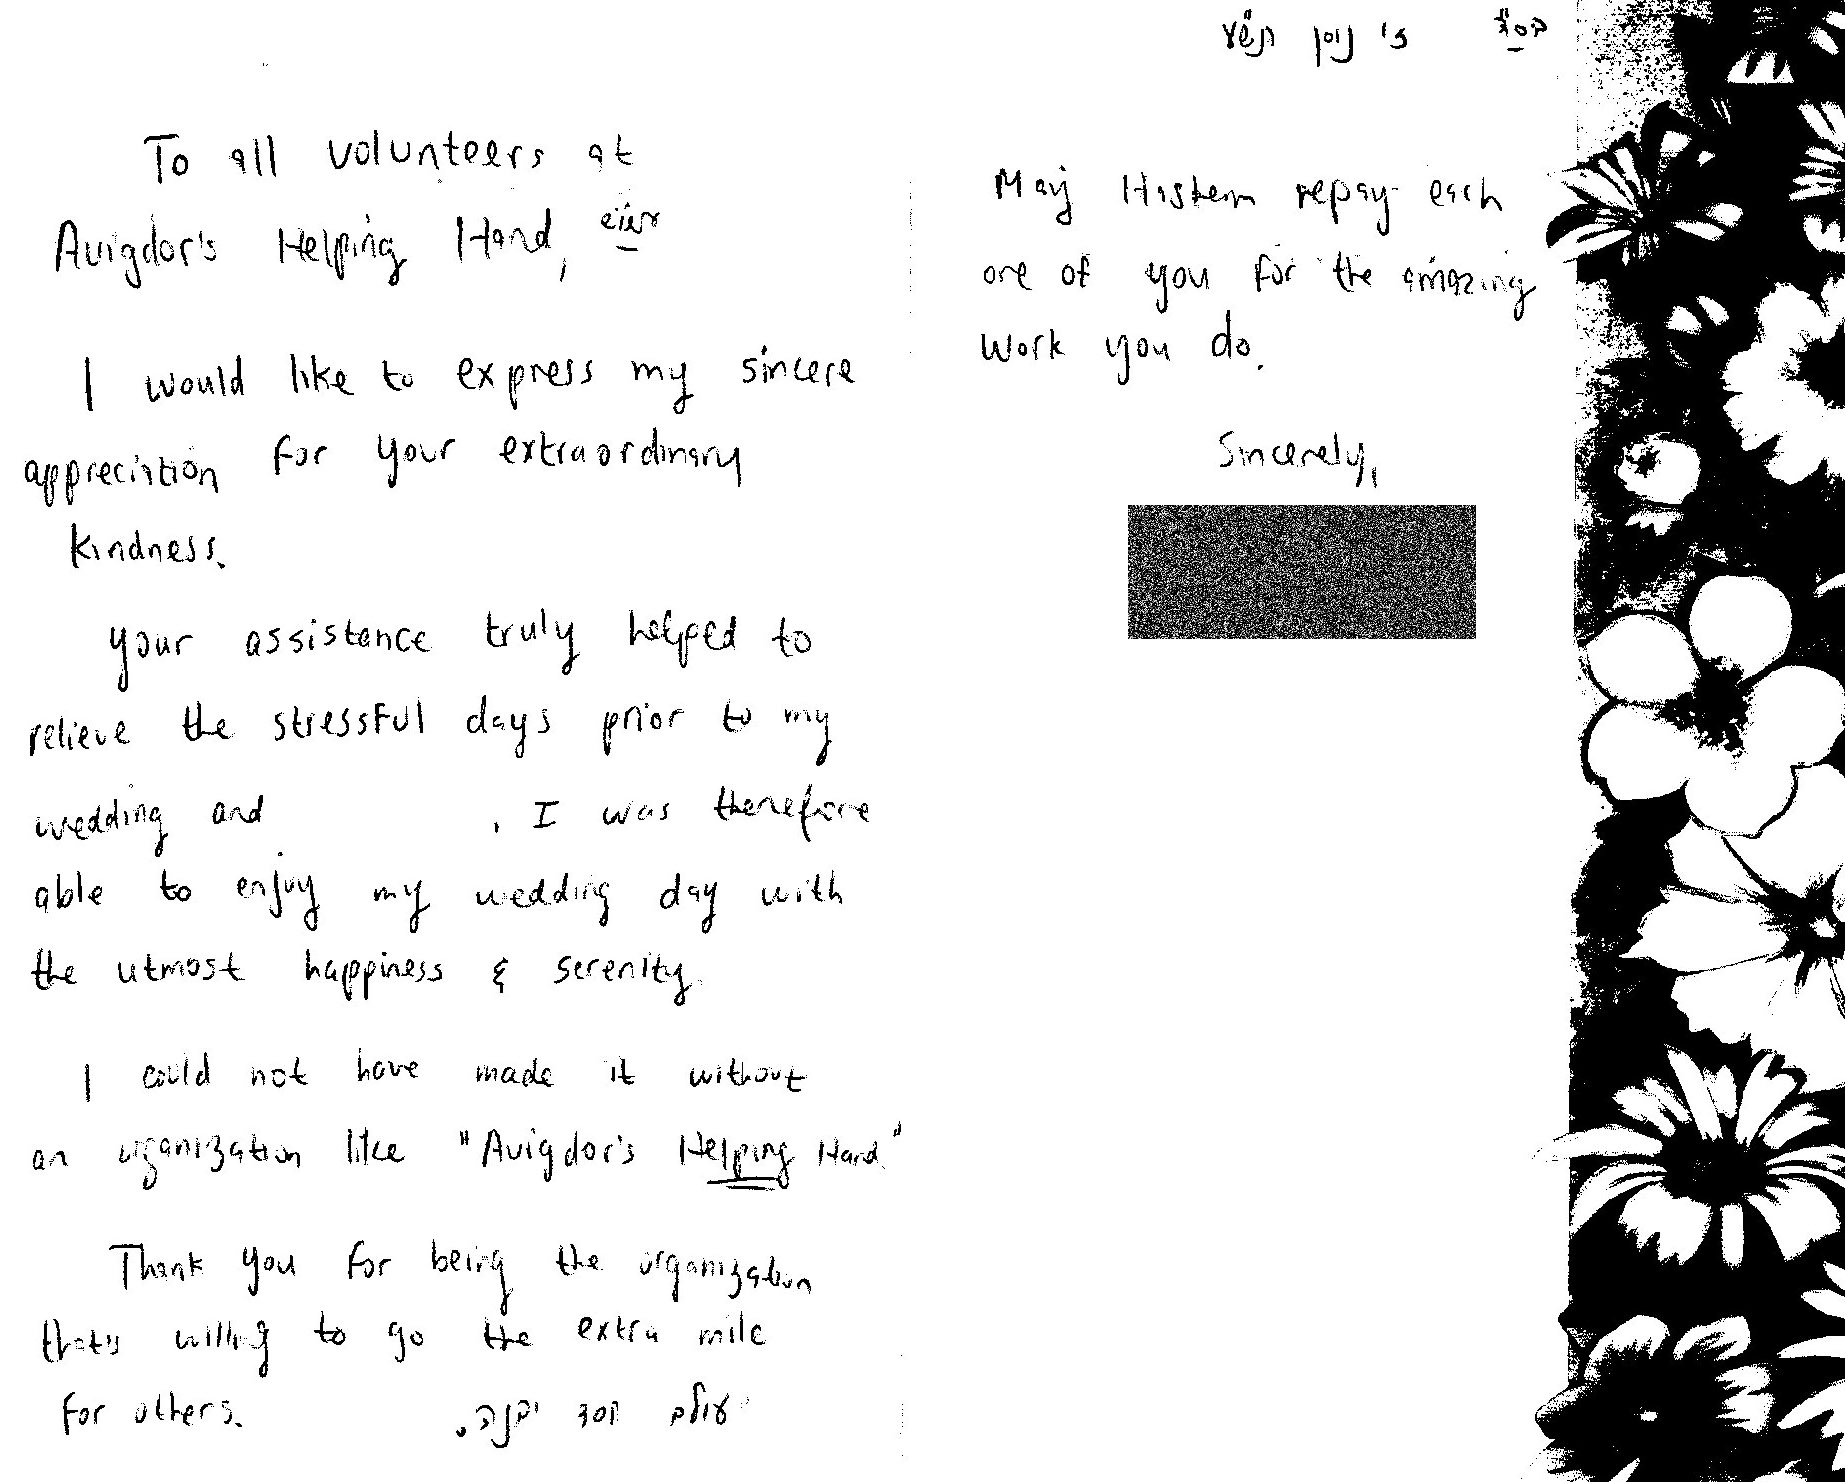 בס"ד   כ' ניסן תשע"ד
To all volunteers at
Avigdor's Helping Hand, שיחי'
I would like to express my sincere
appreciation for your extraordinary
kindness.
Your assistance truly helped to
relieve the stressful days prior to my
wedding and . I was therefore
able to enjoy my wedding day with
the utmost happiness & serenity.
I could not have made it without
an organization like "Avigdor's Helping Hand."
Thank you for being the organization
that's willing to go the extra mile
for others.   עולם חסד יבנה.
May Hashem repay each
one of you for the amazing
work you do.
Sincerely,